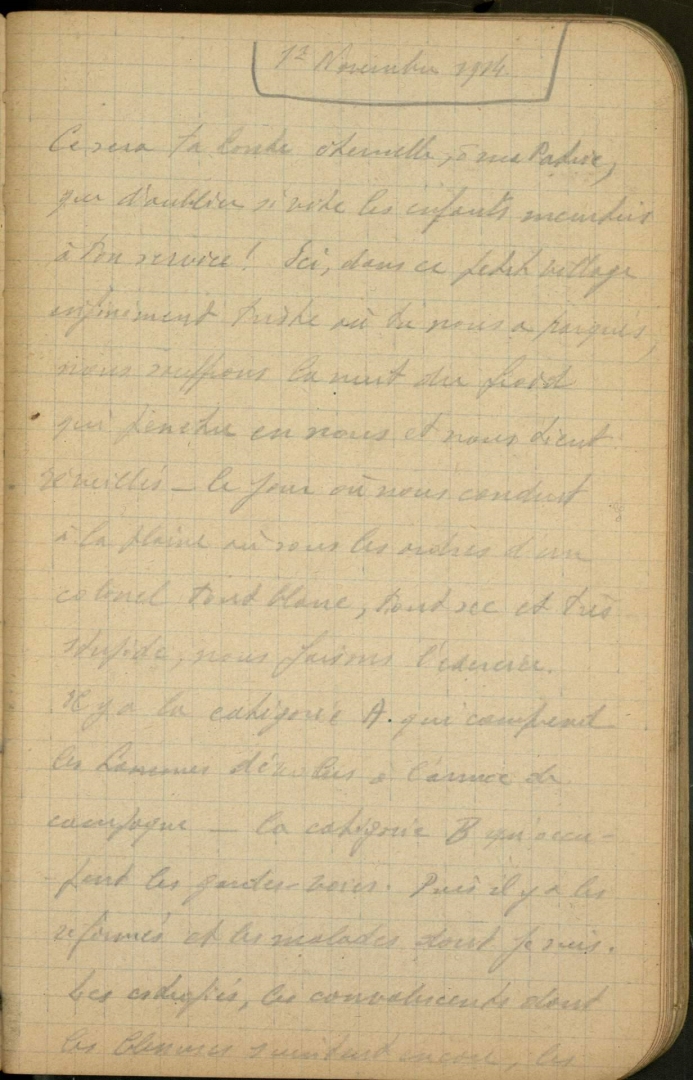 1er Novembre 1914
Ce sera ta honte éternelle, ô ma Patrie,
que d'oublier si vite les enfants meurtris
à ton service ! Ici, dans ce petit village
infiniment triste où tu nous a parqués,
nous souffrons la nuit du froid
qui pénètre en nous et nous tient
réveillés — le jour où nous conduit
à la plaine où sous les ordres d'un
colonel tout blanc, tout sec et très
stupide, nous faisons l'exercice.
Il y a la catégorie A. qui comprend
les hommes dévolus à l'armée de
campagne — la catégorie B qu'occu-
-pent les gardes-voies. Puis il y a les
réformés et les malades dont je suis.
Les estropiés, les convalescents dont
les blessures suintent encore, les